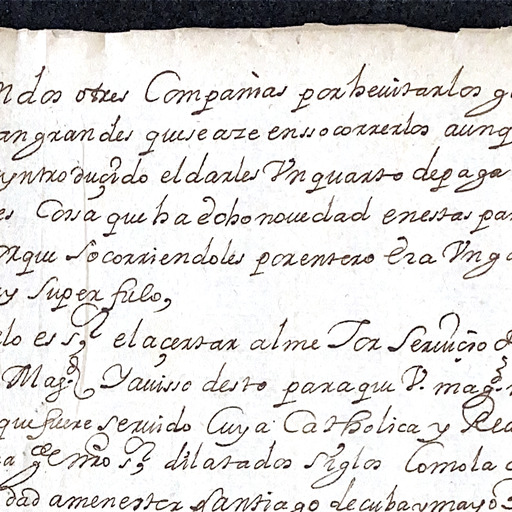 n dos otres Compañias por hevitar los g
an grandes que se aze en socorrerlos aunq
yntroduçido el darles Un quarto de paga
es Cosa que ha echo novedad en estas par
orque socorriendoles por entero Era Un ga
y superfulo,
lo es Sr el acertar al me Jor Serviçio de
Magd Y aviso desto para que V. magd
que fuere servido Cuya Catholica y Rea
a gde nro Sr dilatados siglos Como la c
dad amenester Santiago de cuba y mayo